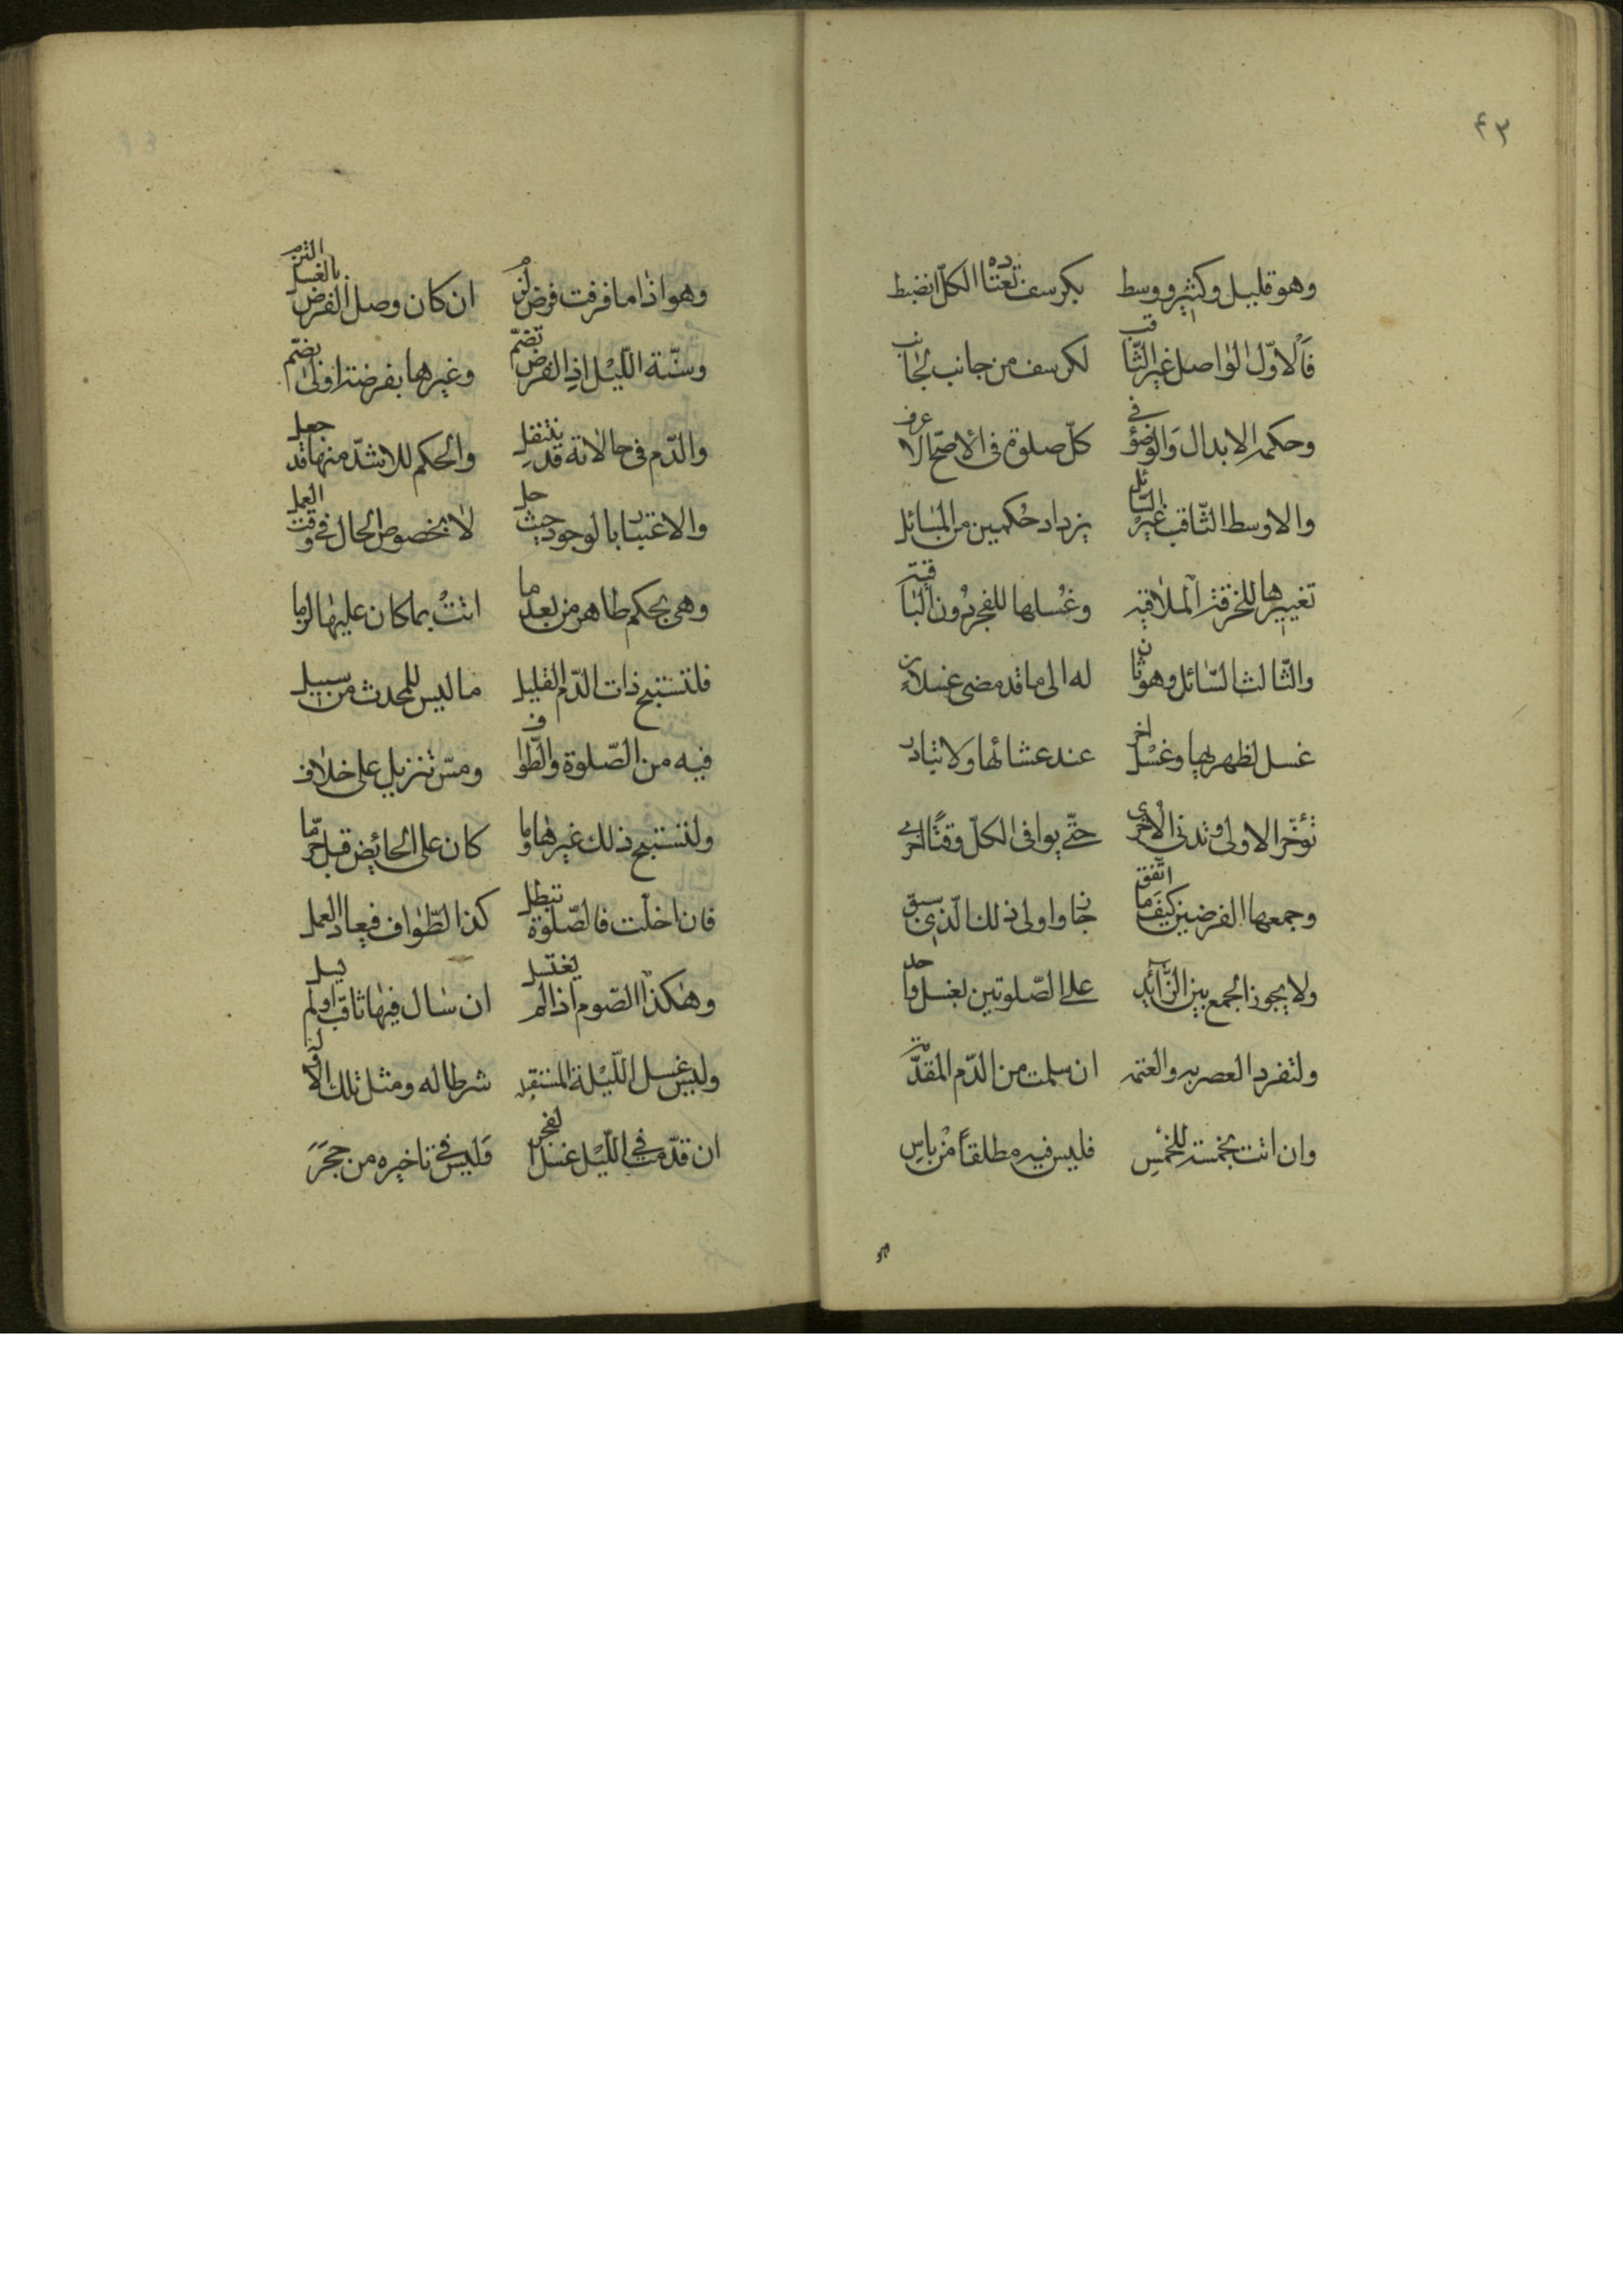 ٤٣
وهو قليل وكثير ووسط بكرسف تعتاده الكل انضبط
فالاوّل الواصل غير الثّاقب لكرسف من جانب لجانب
وحكمه الابدال والوضوء في كلّ صلوة في الاصحّ الاعرف
والاوسط الثّاقب غير السّائل يزداد حكمين من المسائل
تغييرها للخرقة الملاقيه وغسلها للفجر دون الباقيه
والثّالث السّائل وهو ثان له الى ما قد مضى غسلان
غسل لظهريها وغسل اخر عند عشائها ولا تبادر
تؤخّر الاولى وتدنى الاخرى حتّى يوافى الكلّ وقتًا اخرى
وجمعها الفرضين كيف ما اتّفق جاز واولى ذلك الّذي سبق
ولا يجوز الجمع بين الزّائد على الصّلوتين بغسل واحد
ولتفرد العصر به والعتمه ان سلمت من الدّم المقدّمه
وان اتت بخمسة للخمس فليس فيه مطلقاً من باس
وهو اذا ما فرقت فرض لزم ان كان وصل الفرض بالغسل التزم
وسنّة اللّيل اذ الفرض تضمّ وغيرها بفرضه اولى يضمّ
والدّم في حالاته قد ينتقل والحكم للاشدّ منها قد جعل
والاعتبار بالوجود حيث حل لا بخصوص الحال في وقت العمل
وهي بحكم طاهر من بعد ما اتت بما كان عليها لزما
فلتستبح ذات الدّم القليل ما ليس للمحدث من سبيل
فيه من الصّلوة والطّواف ومسّ تنزيل على خلاف
ولتستبح ذلك غيرها وما كان على الحائض قبل حرّما
فان اخلّت فالصّلوة تبطل كذا الطّواف فيعاد العمل
وهكذا الصّوم اذا لم يغتسل ان سال فيها ثاقب او لم يسل
وليس غسل اللّيلة المستقبله شرطا له ومثل تلك الاوله
ان قدّمت في اللّيل غسلا لفجر فليس في تاخيره من حجر